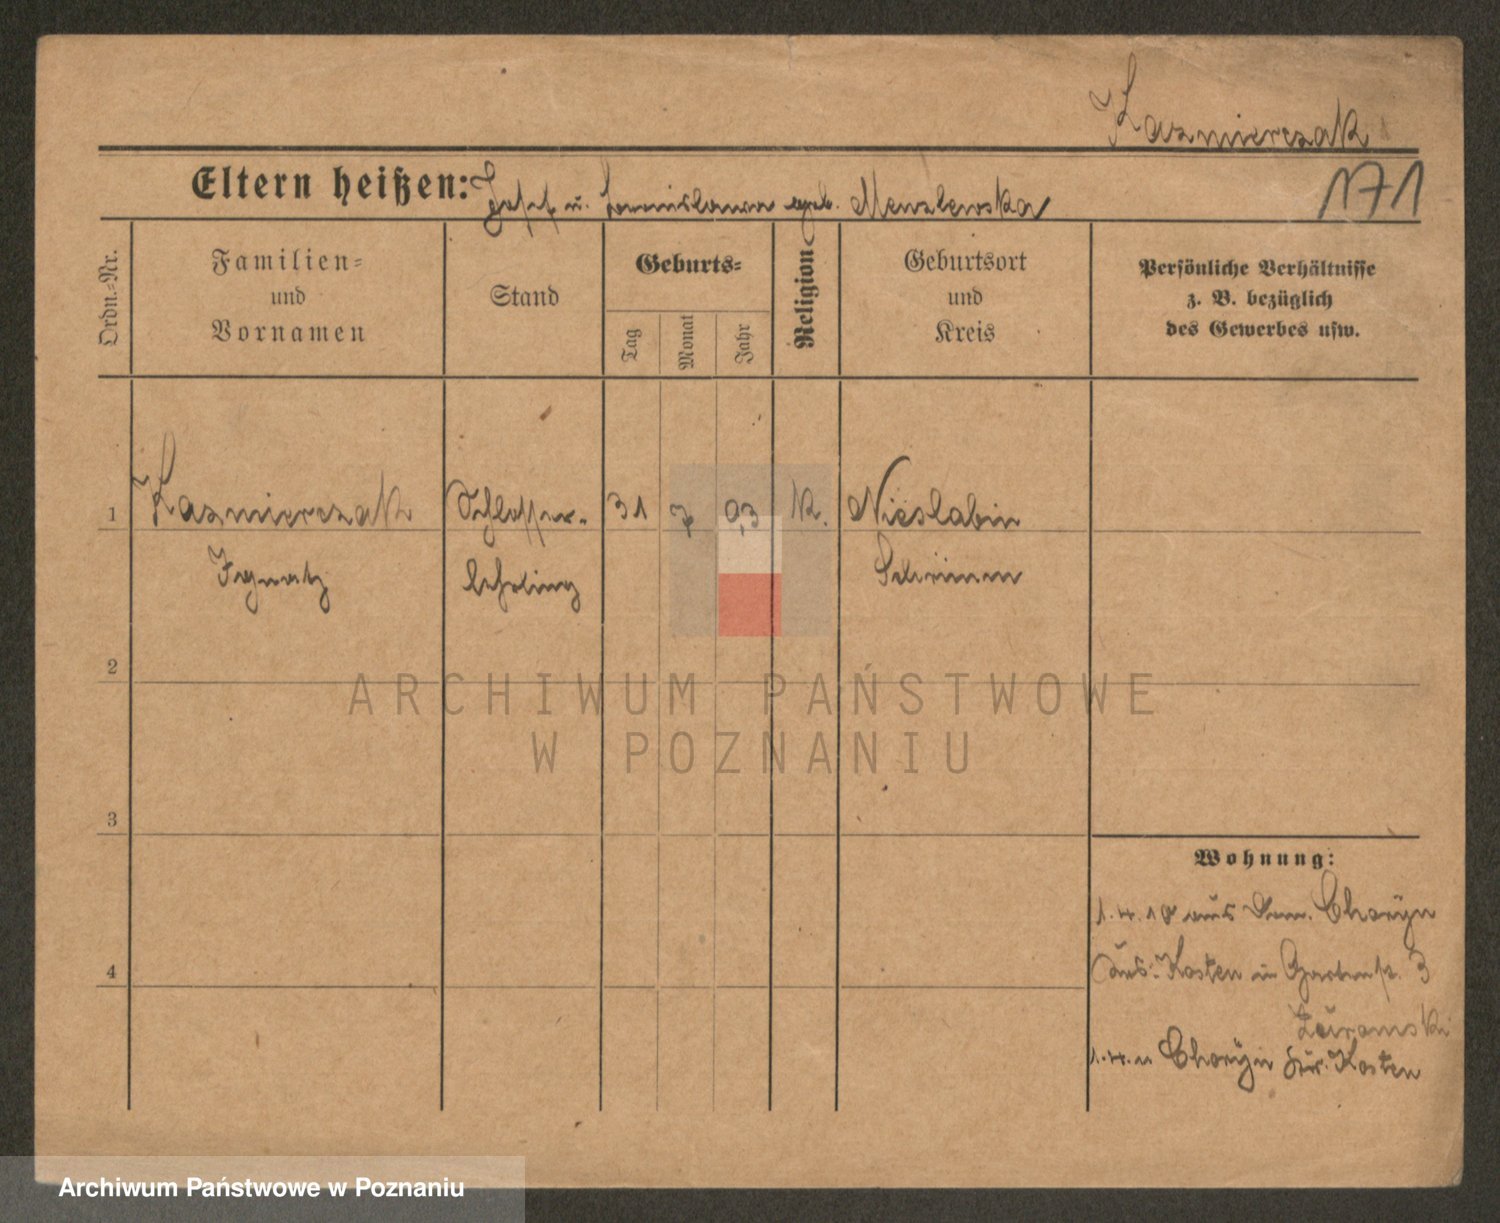 Kazmierczak
Eltern heißen: Josef u. geb.
171
Ordn.-Nr.
Familien-
und
Vornamen
Stand
Geburts-
Tag
Monat
Jahr
Religion
Geburtsort
und
Kreis
Persönliche Verhältnisse
z. B. bezüglich
des Gewerbes usw.
1
Kazmierczak Schlosser- 31 7 93 K. Nieslabin
Ignatz lehrling Schrimm
2
ARCHIWUM PAŃSTWOWE
W POZNANIU
3
Wohnung:
1.4.10 aus Dom. Choryn
Kosten in Gartenstr. 3
4
Żuromski
1.4.11 Choryn Kr. Kosten
Archiwum Państwowe w Poznaniu